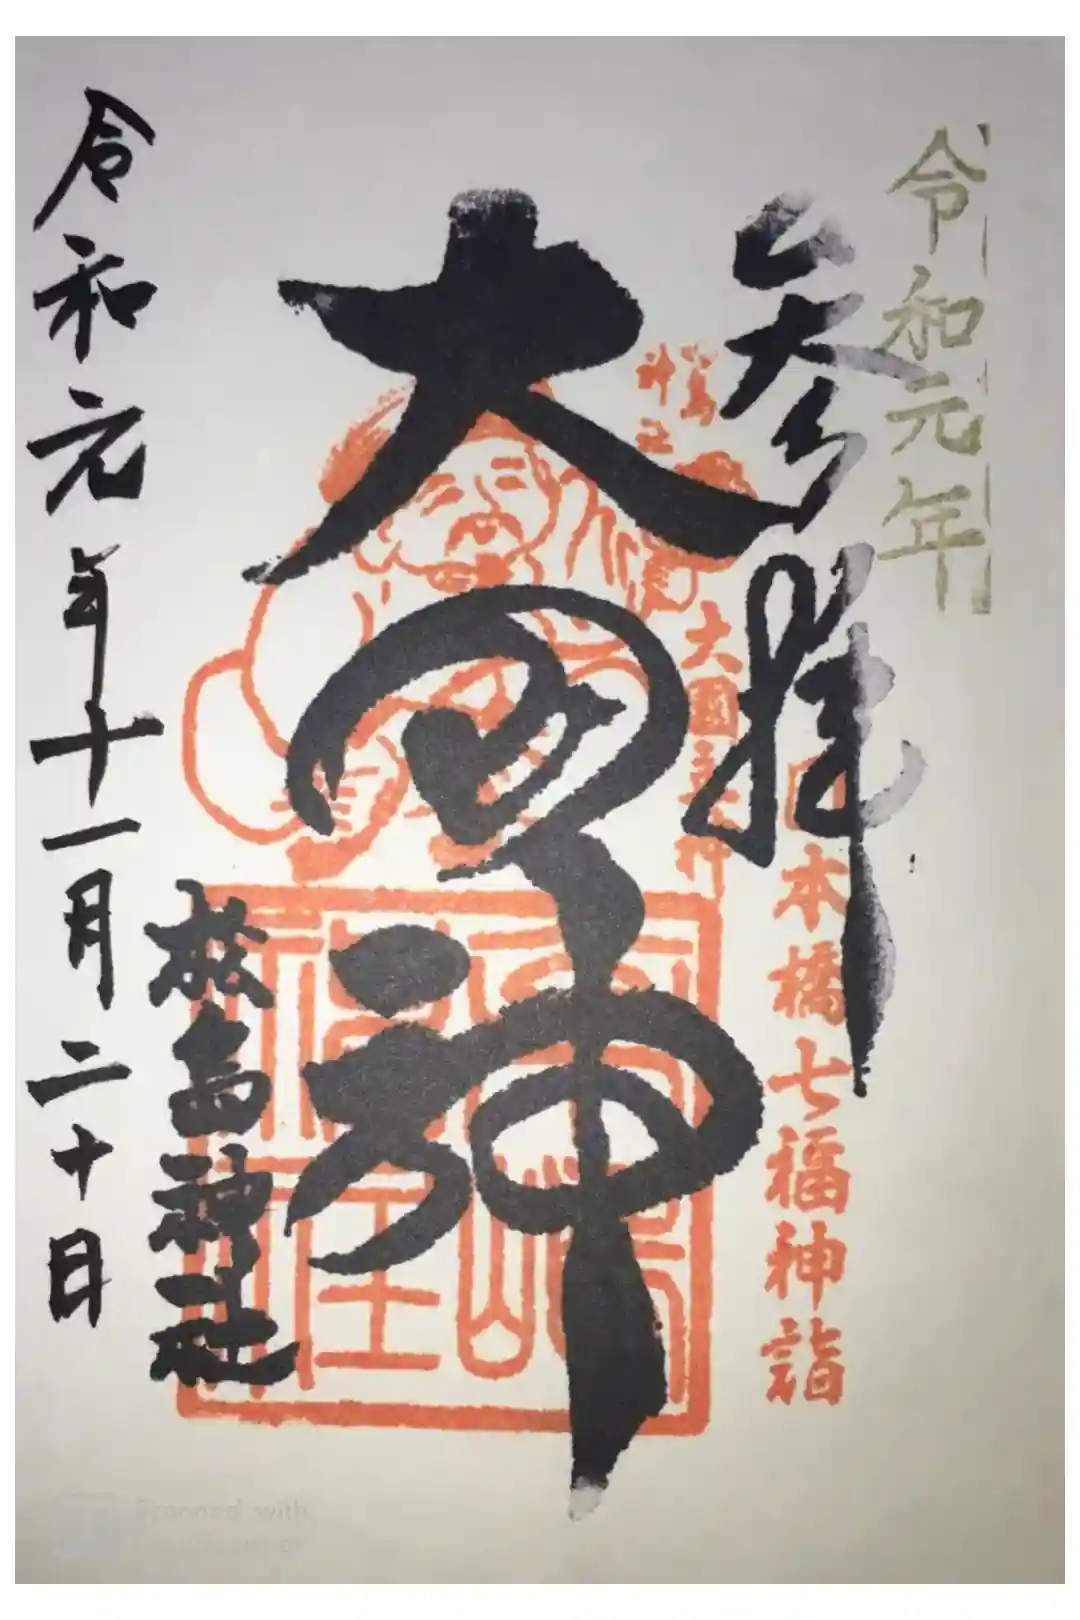 令和元年
参拝
日本橋七福神詣
神社
大國主神
大国神
松島神社
令和元年十一月二十日